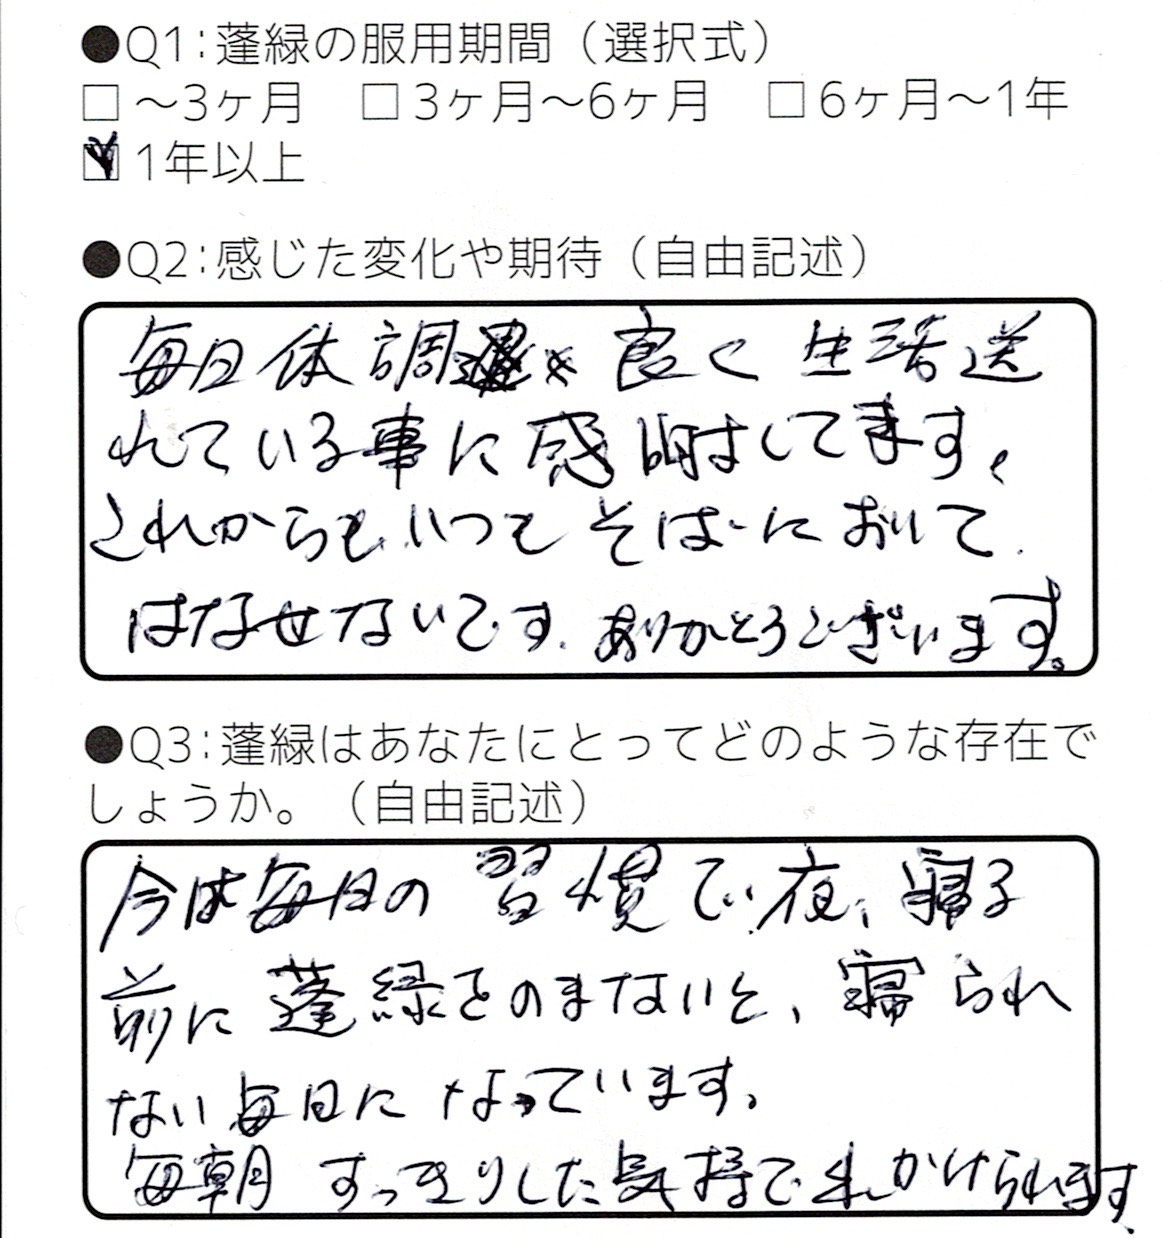 ●Q1:蓬緑の服用期間（選択式）
□ ～3ヶ月　□ 3ヶ月～6ヶ月　□ 6ヶ月～1年
☑ 1年以上
●Q2:感じた変化や期待（自由記述）
毎日体調良く生活送
れている事に感謝してます、
これからもいつもそばにおいて
はなせないです. ありがとうございます。
●Q3:蓬緑はあなたにとってどのような存在で
しょうか。（自由記述）
今は毎日の習慣で、夜、寝る
前に蓬緑をのまないと、寝られ
ない毎日になっています。
毎朝すっきりした気持でかけられます